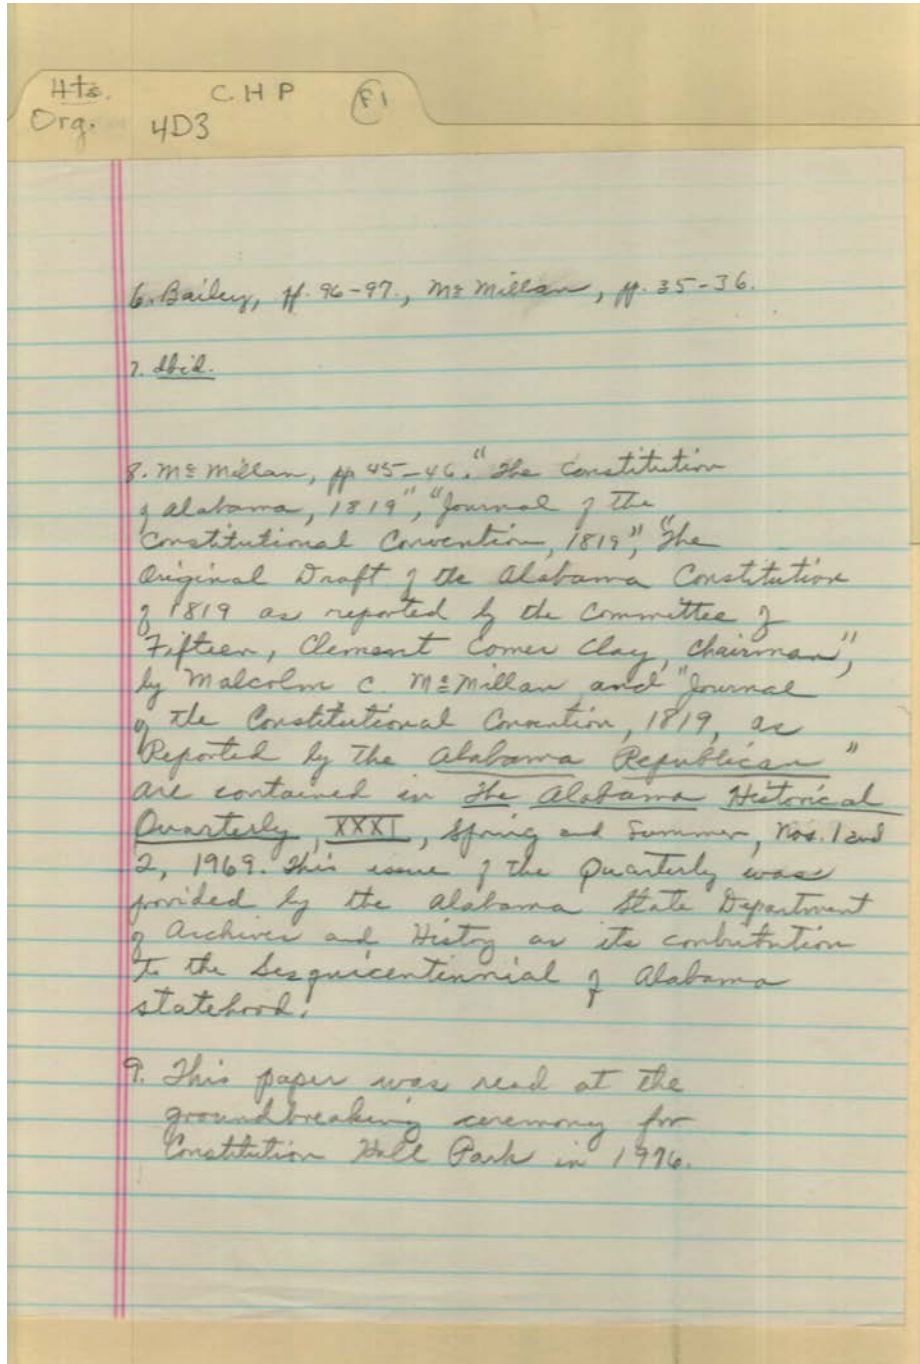 Hts. CHP F1
Org. 4D3
6. Bailey, pp. 96-97., McMillan, pp. 35-36.
7. Ibid.
8. McMillan, pp 45-46. "The Constitution
of Alabama, 1819", "Journal of the
Constitutional Convention, 1819", "The
Original Draft of the Alabama Constitution
of 1819 as reported by the Committee of
Fifteen, Clement Comer Clay, Chairman",
by Malcolm C. McMillan and "Journal
of the Constitutional Convention, 1819, as
Reported by the Alabama Republican"
are contained in The Alabama Historical
Quarterly, XXXI, Spring and Summer, Nos. 1 and
2, 1969. This issue of the Quarterly was
provided by the Alabama State Department
of Archives and History as its contribution
to the Sesquicentennial of Alabama
statehood.
9. This paper was read at the
groundbreaking ceremony for
Constitution Hall Park in 1976.